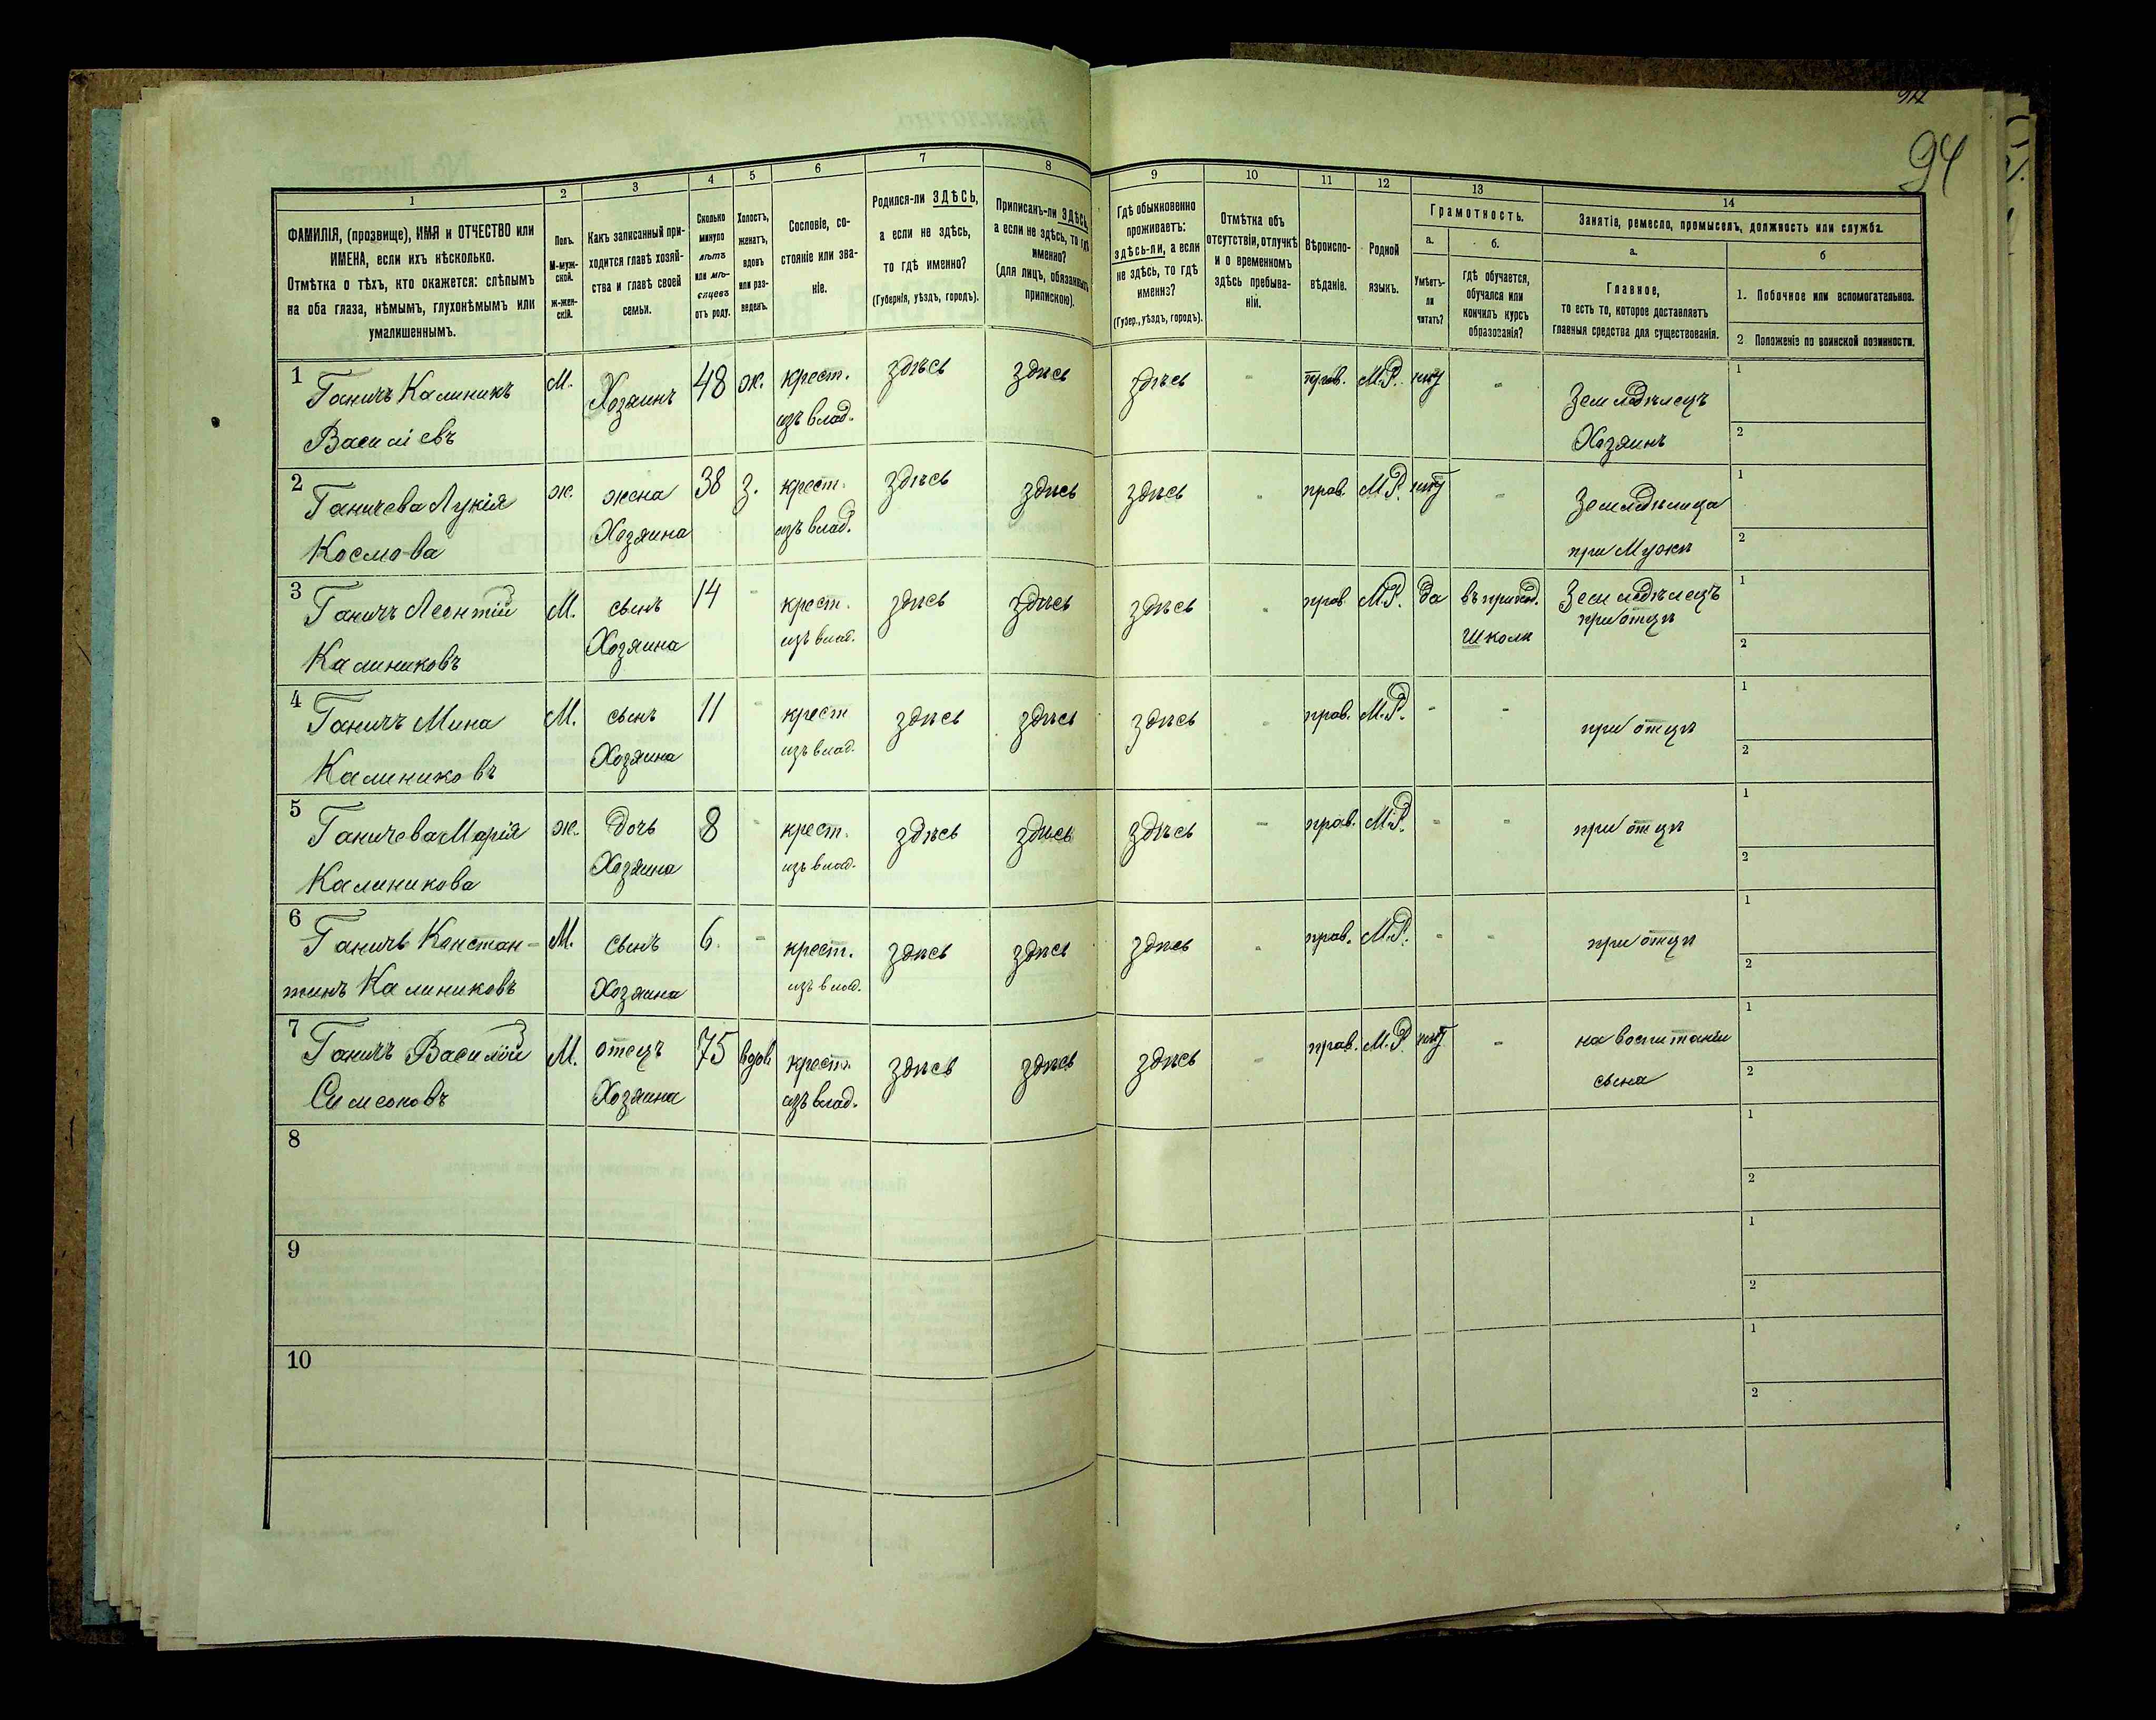 94
1 2 3 4 5 6 7 8 9 10 11 12 13 14
ФАМИЛІЯ, (прозвище), ИМЯ и ОТЧЕСТВО или
ИМЕНА, если ихъ нѣсколько.
Отмѣтка о тѣхъ, кто окажется: слѣпымъ
на оба глаза, нѣмымъ, глухонѣмымъ или
умалишеннымъ.
Полъ.
М-муж-
ской.
ж-жен-
скій.
Какъ записанный при-
ходится главѣ хозяй-
ства и главѣ своей
семьи.
Сколько
минуло
лѣтъ
или мѣ-
сяцевъ
отъ роду.
Холостъ,
женатъ,
вдовъ
или раз-
веденъ.
Сословіе, со-
стояніе или зва-
ніе.
Родился-ли ЗДѢСЬ,
а если не здѣсь,
то гдѣ именно?
(Губернія, уѣздъ, городъ).
Приписанъ-ли ЗДѢСЬ,
а если не здѣсь, то гдѣ
именно?
(для лицъ, обязанныхъ
припискою).
Гдѣ обыкновенно
проживаетъ:
здѣсь-ли, а если
не здѣсь, то гдѣ
именно?
(Губер., уѣздъ, городъ).
Отмѣтка объ
отсутствіи, отлучкѣ
и о временномъ
здѣсь пребыва-
ніи.
Вѣроиспо-
вѣданіе.
Родной
языкъ.
Грамотность.
а. б.
Умѣетъ-
ли
читать?
гдѣ обучается,
обучался или
кончилъ курсъ
образованія?
Занятіе, ремесло, промыселъ, должность или служба.
а. б
Главное,
то есть то, которое доставляетъ
главныя средства для существованія.
1. Побочное или вспомогательное.
2 Положеніе по воинской повинности.
1 Ганичъ Калиникъ М. Хозяинъ 48 ж. крест. здѣсь здѣсь здѣсь - прав. М.Р. нѣт - Земледѣлецъ 1
Василіевъ изъ влад. Хозяинъ 2
2 Ганичева Лукія ж. жена 38 з. крест. здѣсь здѣсь здѣсь - прав. М.Р. нѣт - Земледѣлица 1
Космова Хозяина изъ влад. при Мужѣ 2
3 Ганичъ Леонтій М. сынъ 14 - крест. здѣсь здѣсь здѣсь - прав. М.Р. да въ приход. Земледѣлецъ 1
Калиниковъ Хозяина изъ влад. школѣ при отцѣ 2
4 Ганичъ Мина М. сынъ 11 - крест здѣсь здѣсь здѣсь - прав. М.Р. - - при отцѣ 1
Калиниковъ Хозяина изъ влад. 2
5 Ганичева Марія ж. дочь 8 - крест. здѣсь здѣсь здѣсь - прав. М.Р. - - при отцѣ 1
Калиникова Хозяина изъ влад. 2
6 Ганичъ Констан- М. сынъ 6. - крест. здѣсь здѣсь здѣсь - прав. М.Р. - - при отцѣ 1
тинъ Калиниковъ Хозяина изъ влад. 2
7 Ганичъ Василій М. отецъ 75 вдов. крест. здѣсь здѣсь здѣсь - прав. М.Р. нѣт - на воспитаніи 1
Симеоновъ Хозяина изъ влад. сына 2
8 1
2
9 1
2
10 1
2